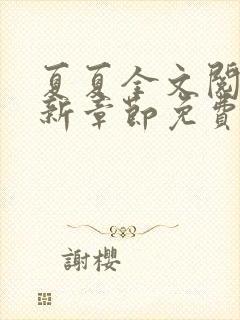 夏夏全文閱
新章節免費
謝櫻